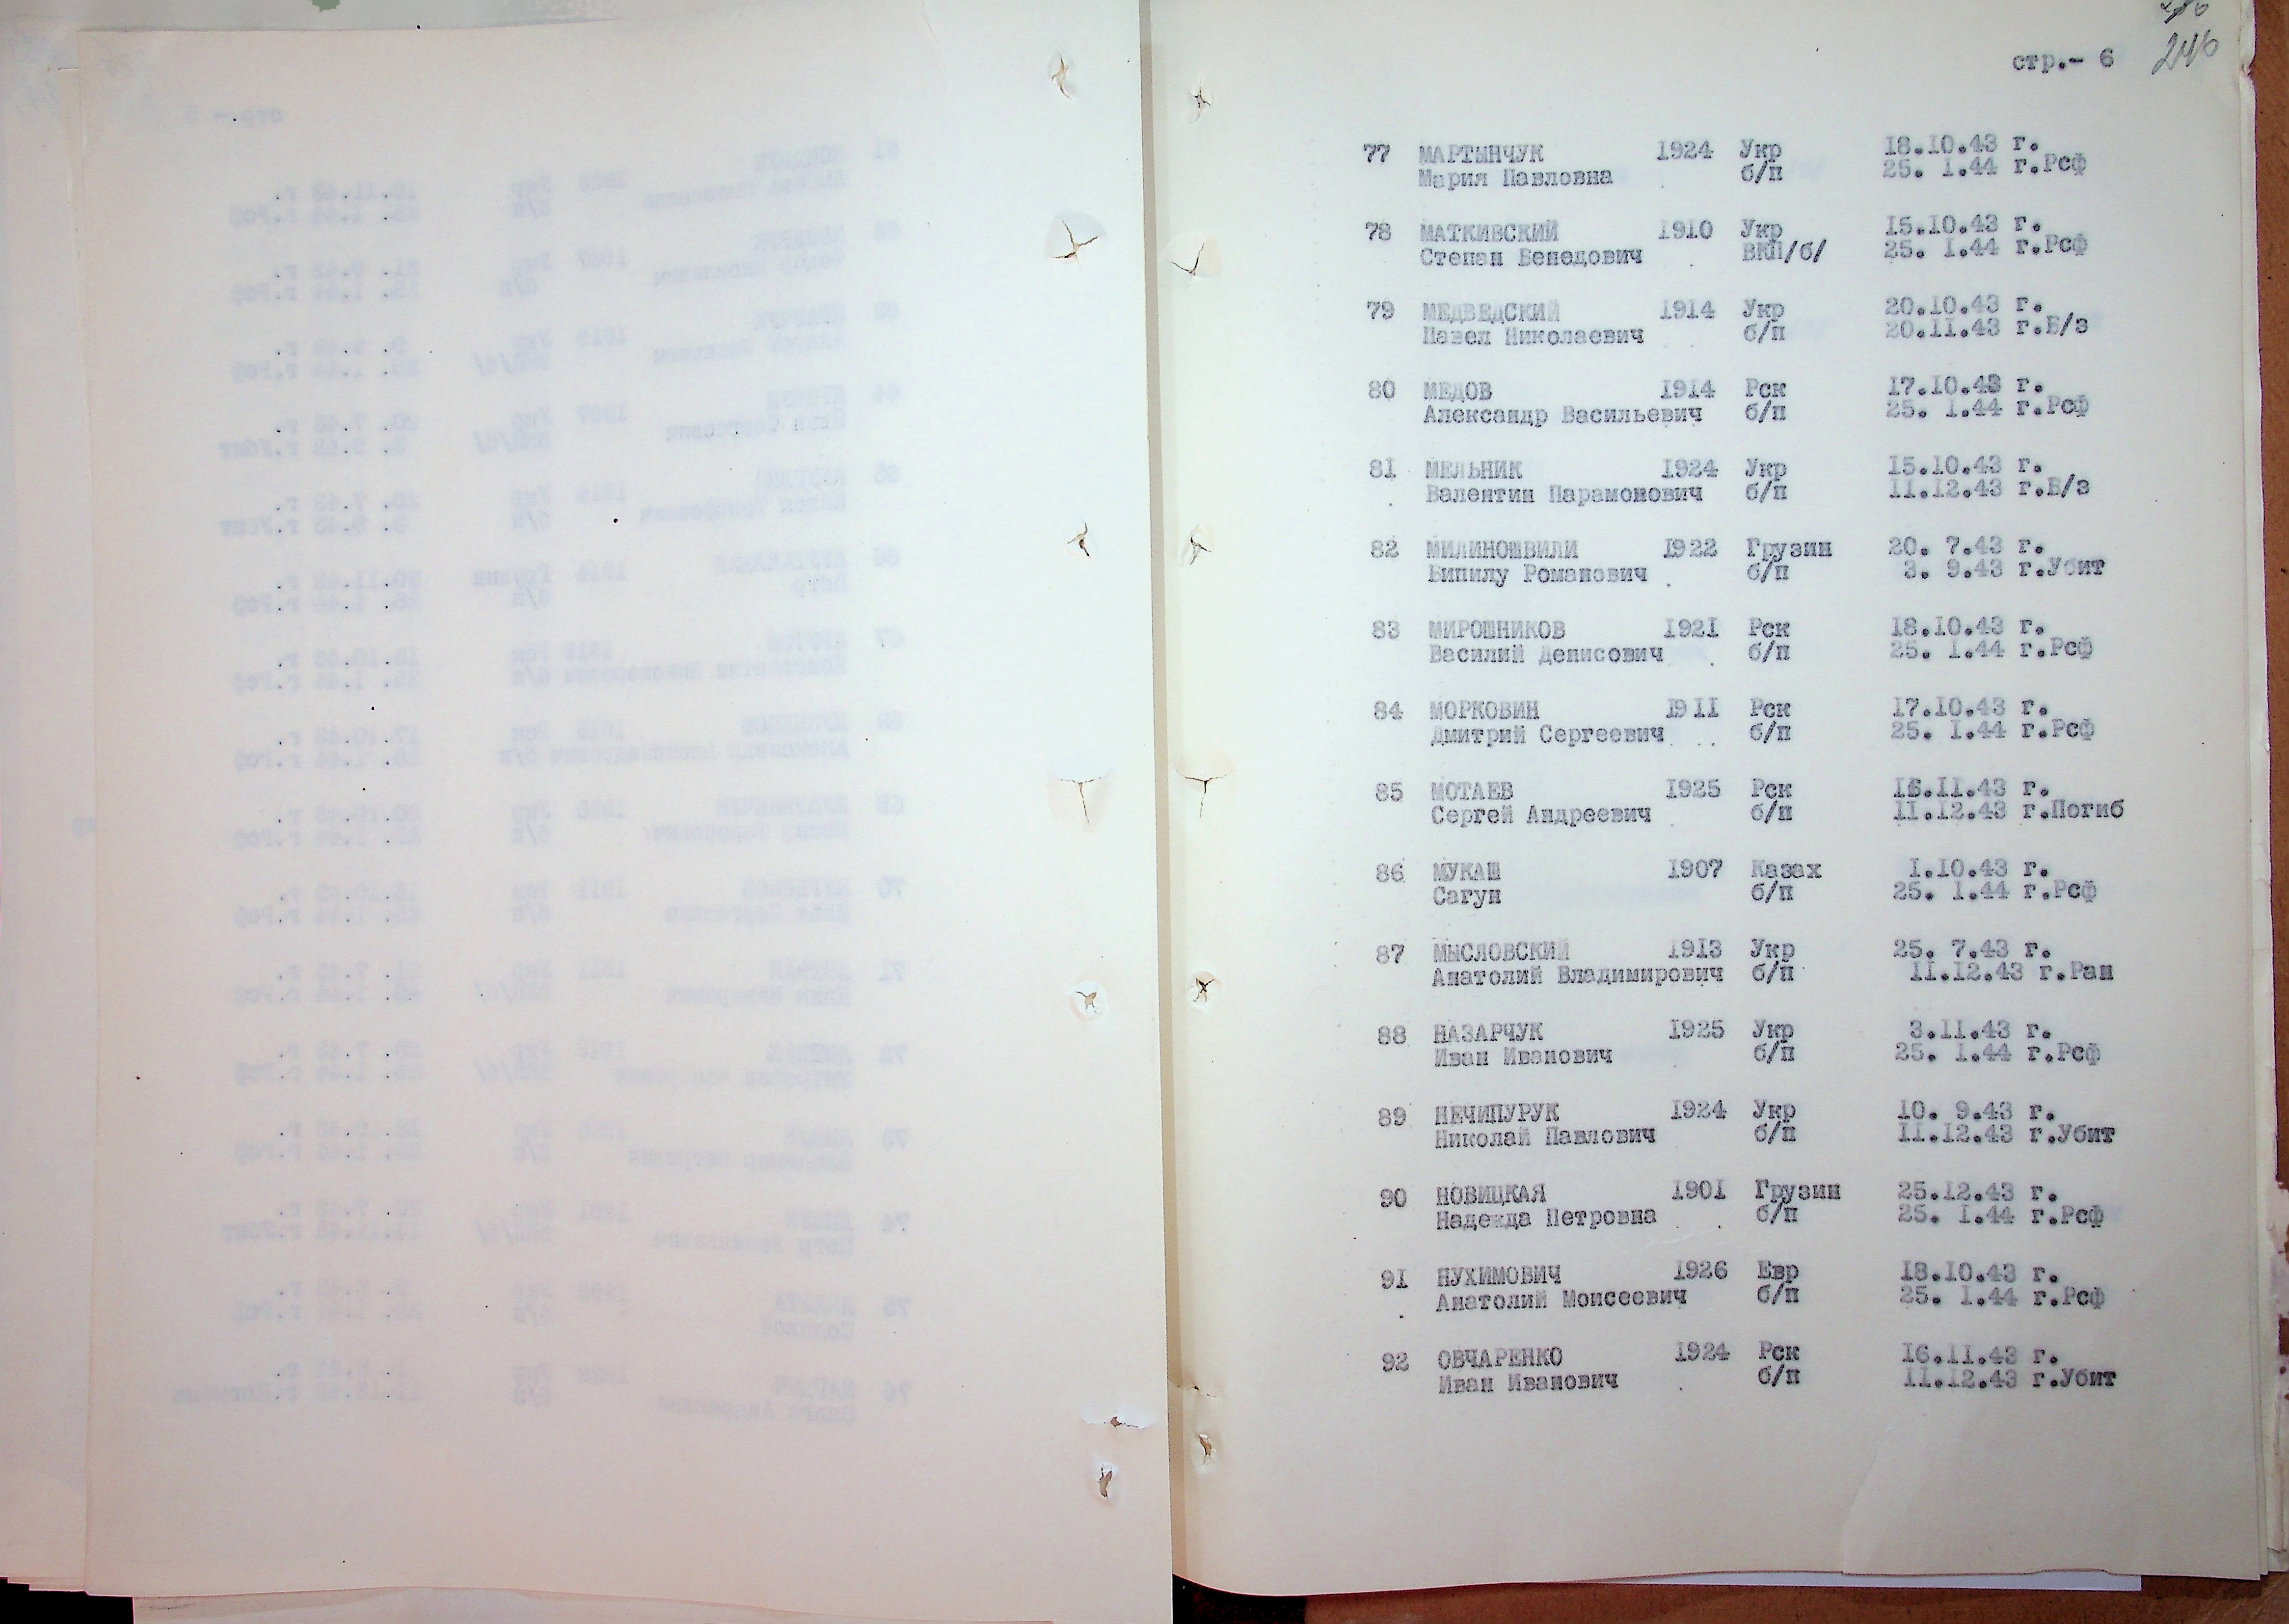 стр.- 6
246
77 МАРТЫНЧУК 1924 Укр 18.10.43 г.
Мария Павловна б/п 25. 1.44 г.Рсф
78 МАТКИВСКИЙ 1910 Укр 15.10.43 г.
Степан Бенедович ВКП/б/ 25. 1.44 г.Рсф
79 МЕДВЕДСКИЙ 1914 Укр 20.10.43 г.
Павел Николаевич б/п 20.11.43 г.Б/з
80 МЕДОВ 1914 Рск 17.10.43 г.
Александр Васильевич б/п 25. 1.44 г.Рсф
81 МЕЛЬНИК 1924 Укр 15.10.43 г.
Валентин Парамонович б/п 11.12.43 г.Б/з
82 МИЛИНОШВИЛИ 1922 Грузин 20. 7.43 г.
Випилу Романович б/п 3. 9.43 г.Убит
83 МИРОШНИКОВ 1921 Рск 18.10.43 г.
Василий Денисович б/п 25. 1.44 г.Рсф
84 МОРКОВИН 1911 Рск 17.10.43 г.
Дмитрий Сергеевич б/п 25. 1.44 г.Рсф
85 МОТАЕВ 1925 Рск 16.11.43 г.
Сергей Андреевич б/п 11.12.43 г.Погиб
86 МУКАШ 1907 Казах 1.10.43 г.
Сагун б/п 25. 1.44 г.Рсф
87 МЫСЛОВСКИЙ 1913 Укр 25. 7.43 г.
Анатолий Владимирович б/п 11.12.43 г.Ран
88 НАЗАРЧУК 1925 Укр 3.11.43 г.
Иван Иванович б/п 25. 1.44 г.Рсф
89 НЕЧИПУРУК 1924 Укр 10. 9.43 г.
Николай Павлович б/п 11.12.43 г.Убит
90 НОВИЦКАЯ 1901 Грузин 25.12.43 г.
Надежда Петровна б/п 25. 1.44 г.Рсф
91 НУХИМОВИЧ 1926 Евр 18.10.43 г.
Анатолий Моисеевич б/п 25. 1.44 г.Рсф
92 ОВЧАРЕНКО 1924 Рск 16.11.43 г.
Иван Иванович б/п 11.12.43 г.Убит